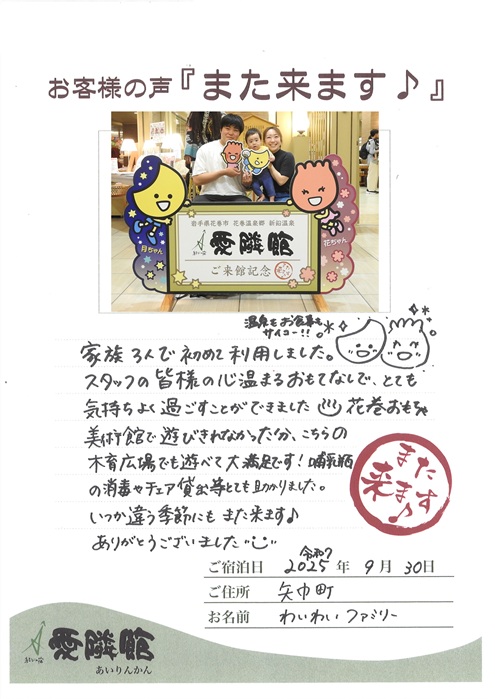 お客様の声『また来ます♪』
月ちゃん
花ちゃん
岩手県花巻市 花巻温泉郷 新鉛温泉
愛隣館
ご来館記念
温泉もお食事も
サイコー!!
家族3人で初めて利用しました。
スタッフの皆様の心温まるおもてなしで、とても
気持ちよく過ごすことができました♨ 花巻おもちゃ
美術館で遊びきれなかった分、こちらの
木育広場でも遊べて大満足です！哺乳瓶
の消毒やチェア貸出等とても助かりました。
いつか違う季節にもまた来ます♪
ありがとうございました
また
来ます♪
令和7
ご宿泊日 2025年 9月 30日
ご住所 矢巾町
お名前 わいわいファミリー
愛隣館
あいりんかん